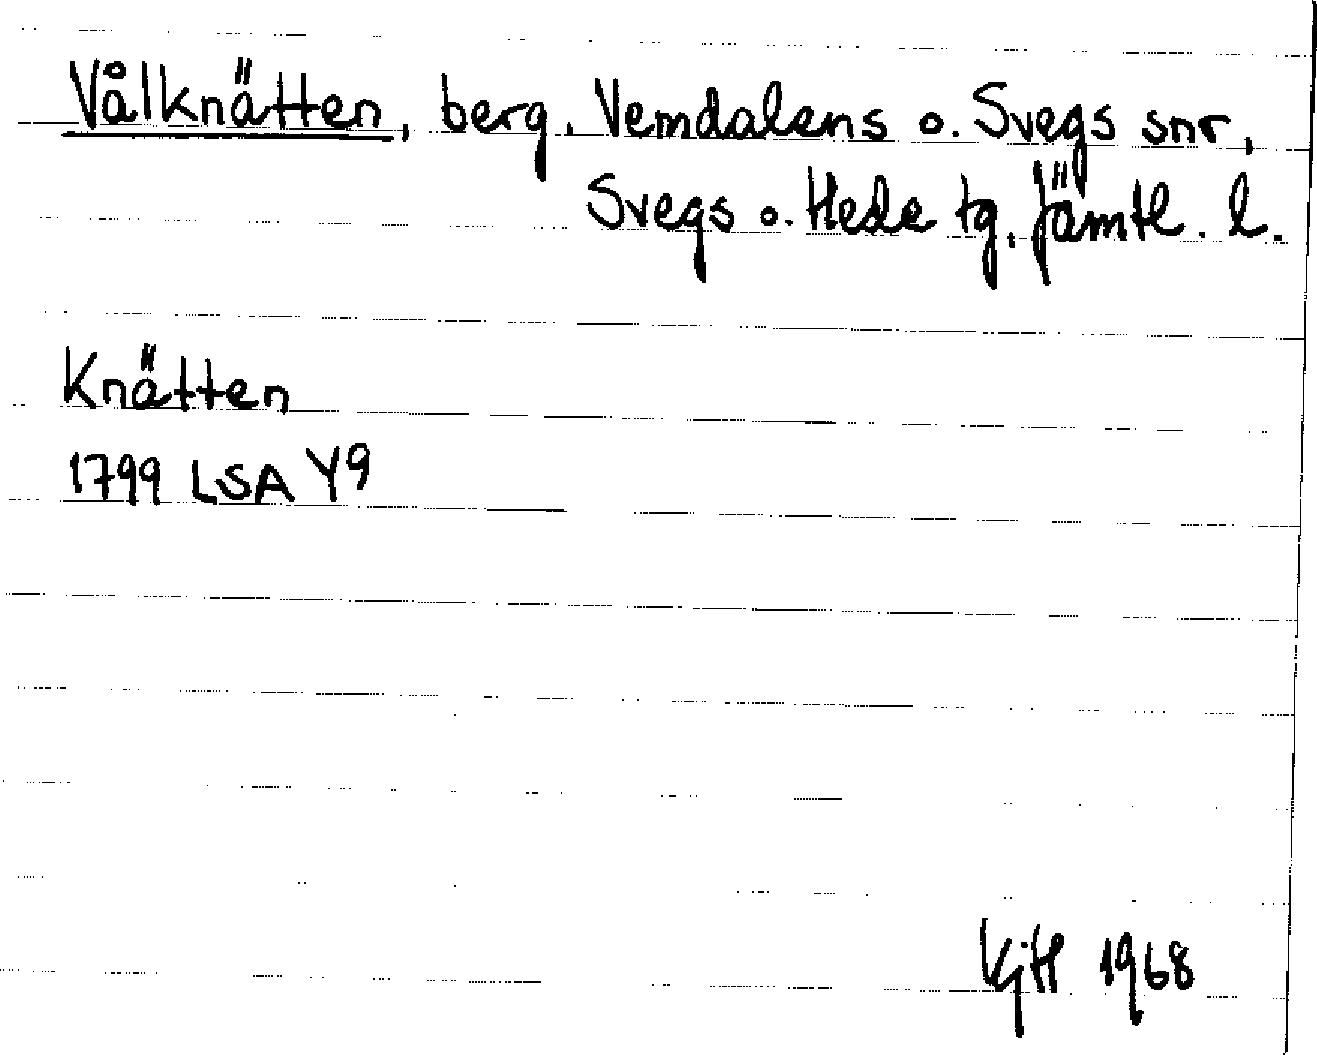 Vålknätten, berg, Vemdalens o. Svegs snr,
Svegs o. Hede tg, Jämtl. l.
Knätten
1799 LSA Y9
KjH 1968